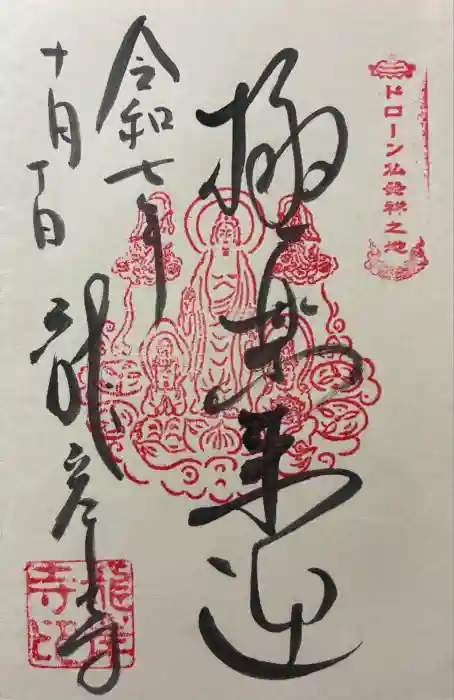 ドローン仏發祥之地
極楽来迎
令和七年
十月 日
龍岸寺
龍岸寺印